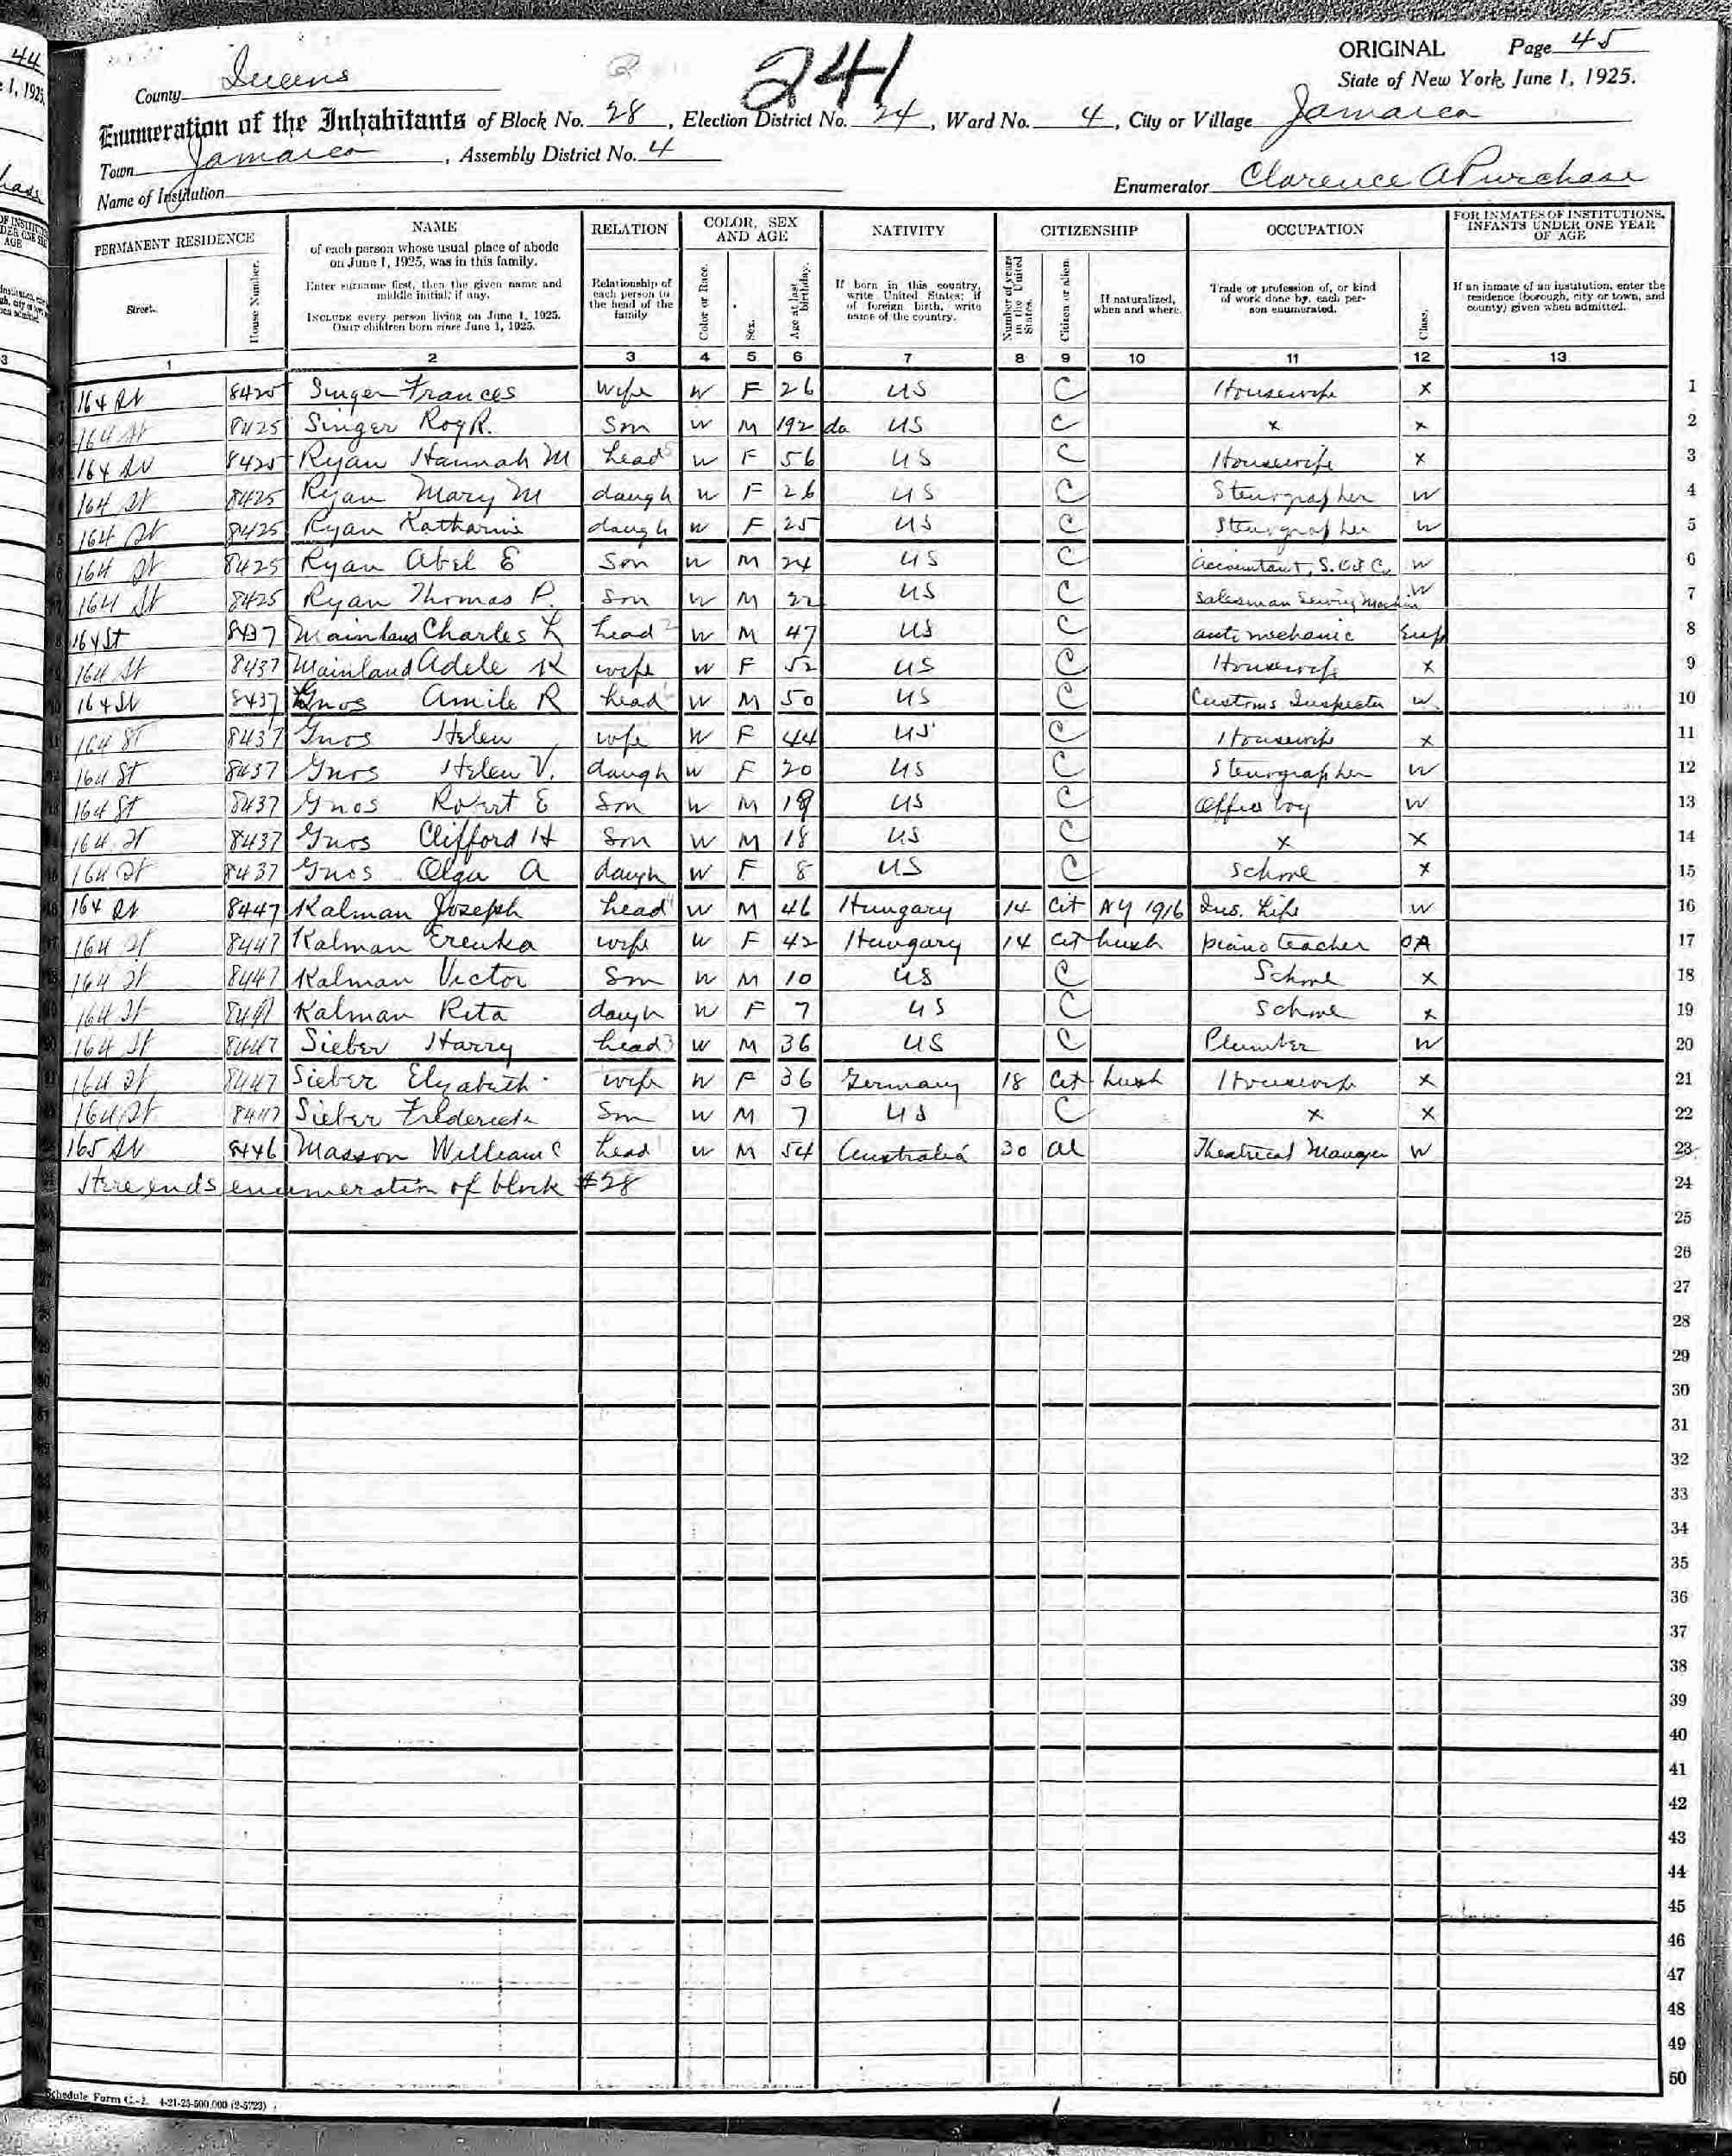 44
241
ORIGINAL Page 45
State of New York, June 1, 1925.
County Queens
Enumeration of the Inhabitants of Block No. 28, Election District No. 24, Ward No. 4, City or Village Jamaica
Town Jamaica, Assembly District No. 4
Name of Institution
Enumerator Clarence A Purchase
PERMANENT RESIDENCE
Street.
House Number.
NAME
of each person whose usual place of abode on June 1, 1925, was in this family.
Enter surname first, then the given name and middle initial, if any.
INCLUDE every person living on June 1, 1925. OMIT children born since June 1, 1925.
RELATION
Relationship of each person to the head of the family
COLOR, SEX AND AGE
Color or Race.
Sex.
Age at last birthday.
NATIVITY
If born in this country, write United States; if of foreign birth, write name of the country.
CITIZENSHIP
Number of years in the United States.
Citizen or alien.
If naturalized, when and where.
OCCUPATION
Trade or profession of, or kind of work done by, each person enumerated.
Class.
FOR INMATES OF INSTITUTIONS, INFANTS UNDER ONE YEAR OF AGE
If an inmate of an institution, enter the residence (borough, city or town, and county) given when admitted.
1 2 3 4 5 6 7 8 9 10 11 12 13
164 St 8425 Singer Frances wife W F 26 US C Housewife x 1
164 St 8425 Singer Roy R. Son W M 192 da US C x x 2
164 St 8425 Ryan Hannah M head W F 56 US C Housewife x 3
164 St 8425 Ryan Mary M daugh W F 26 US C Stenographer W 4
164 St 8425 Ryan Katharine daugh W F 25 US C Stenographer W 5
164 St 8425 Ryan Abel E Son W M 24 US C accountant, S. W 6
164 St 8425 Ryan Thomas P. Son W M 22 US C Salesman Sewing Machine W 7
164 St 8437 Mainland Charles L head W M 47 US C auto mechanic Emp 8
164 St 8437 Mainland Adele K wife W F 52 US C Housewife x 9
164 St 8437 Gnos Amile R head W M 50 US C Customs Inspector W 10
164 St 8437 Gnos Helen wife W F 44 US C Housewife x 11
164 St 8437 Gnos Helen V. daugh W F 20 US C Stenographer W 12
164 St 8437 Gnos Robert E Son W M US C Office boy W 13
164 St 8437 Gnos Clifford H Son W M 18 US C x x 14
164 St 8437 Gnos Olga A daugh W F 8 US C School x 15
164 St 8447 Kalman Joseph head W M 46 Hungary 14 Cit NY 1916 Ins. Life W 16
164 St 8447 Kalman Erenka wife W F 42 Hungary 14 Cit husb piano teacher OA 17
164 St 8447 Kalman Victor Son W M 10 US C School x 18
164 St Kalman Rita daugh W F 7 US C School x 19
164 St 8447 Sieber Harry head W M 36 US C Plumber W 20
164 St 8447 Sieber Elizabeth wife W F 36 Germany 18 Cit husb Housewife x 21
164 St 8447 Sieber Frederick Son W M 7 US C x x 22
165 St 8446 Masson William C head W M 54 Australia 30 al Theatrical Manager W 23
Here ends enumeration of block #28 24
25
26
27
28
29
30
31
32
33
34
35
36
37
38
39
40
41
42
43
44
45
46
47
48
49
50
Schedule Form C.-1. 4-21-25-500,000 (2-5723)